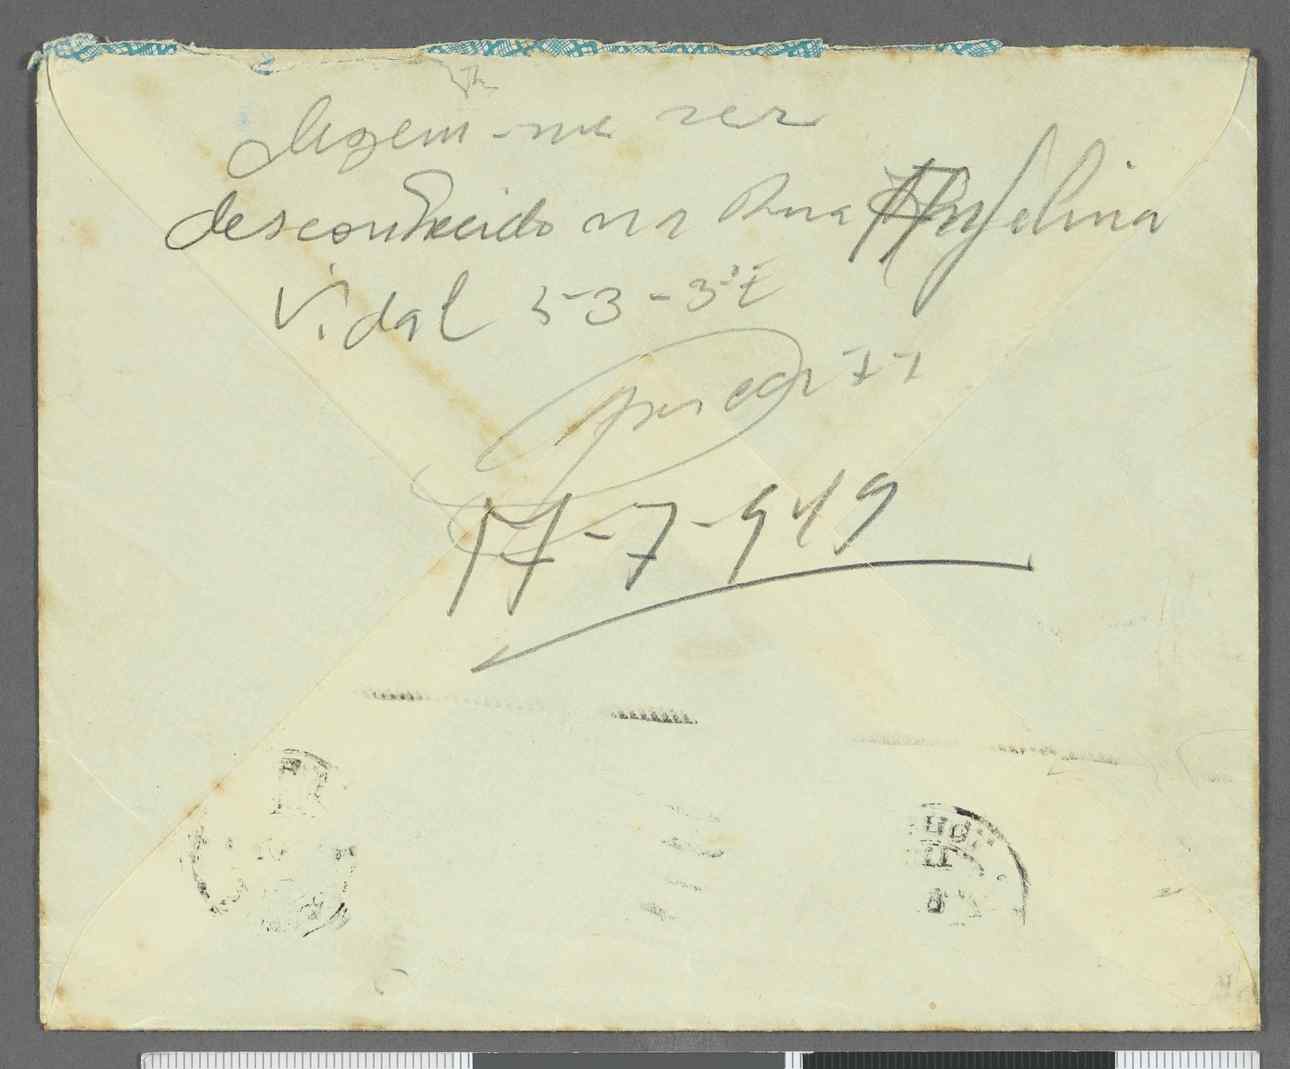 dizem-me ser
desconhecido na Rua Angelina
Vidal 53-3º E
17-7-949